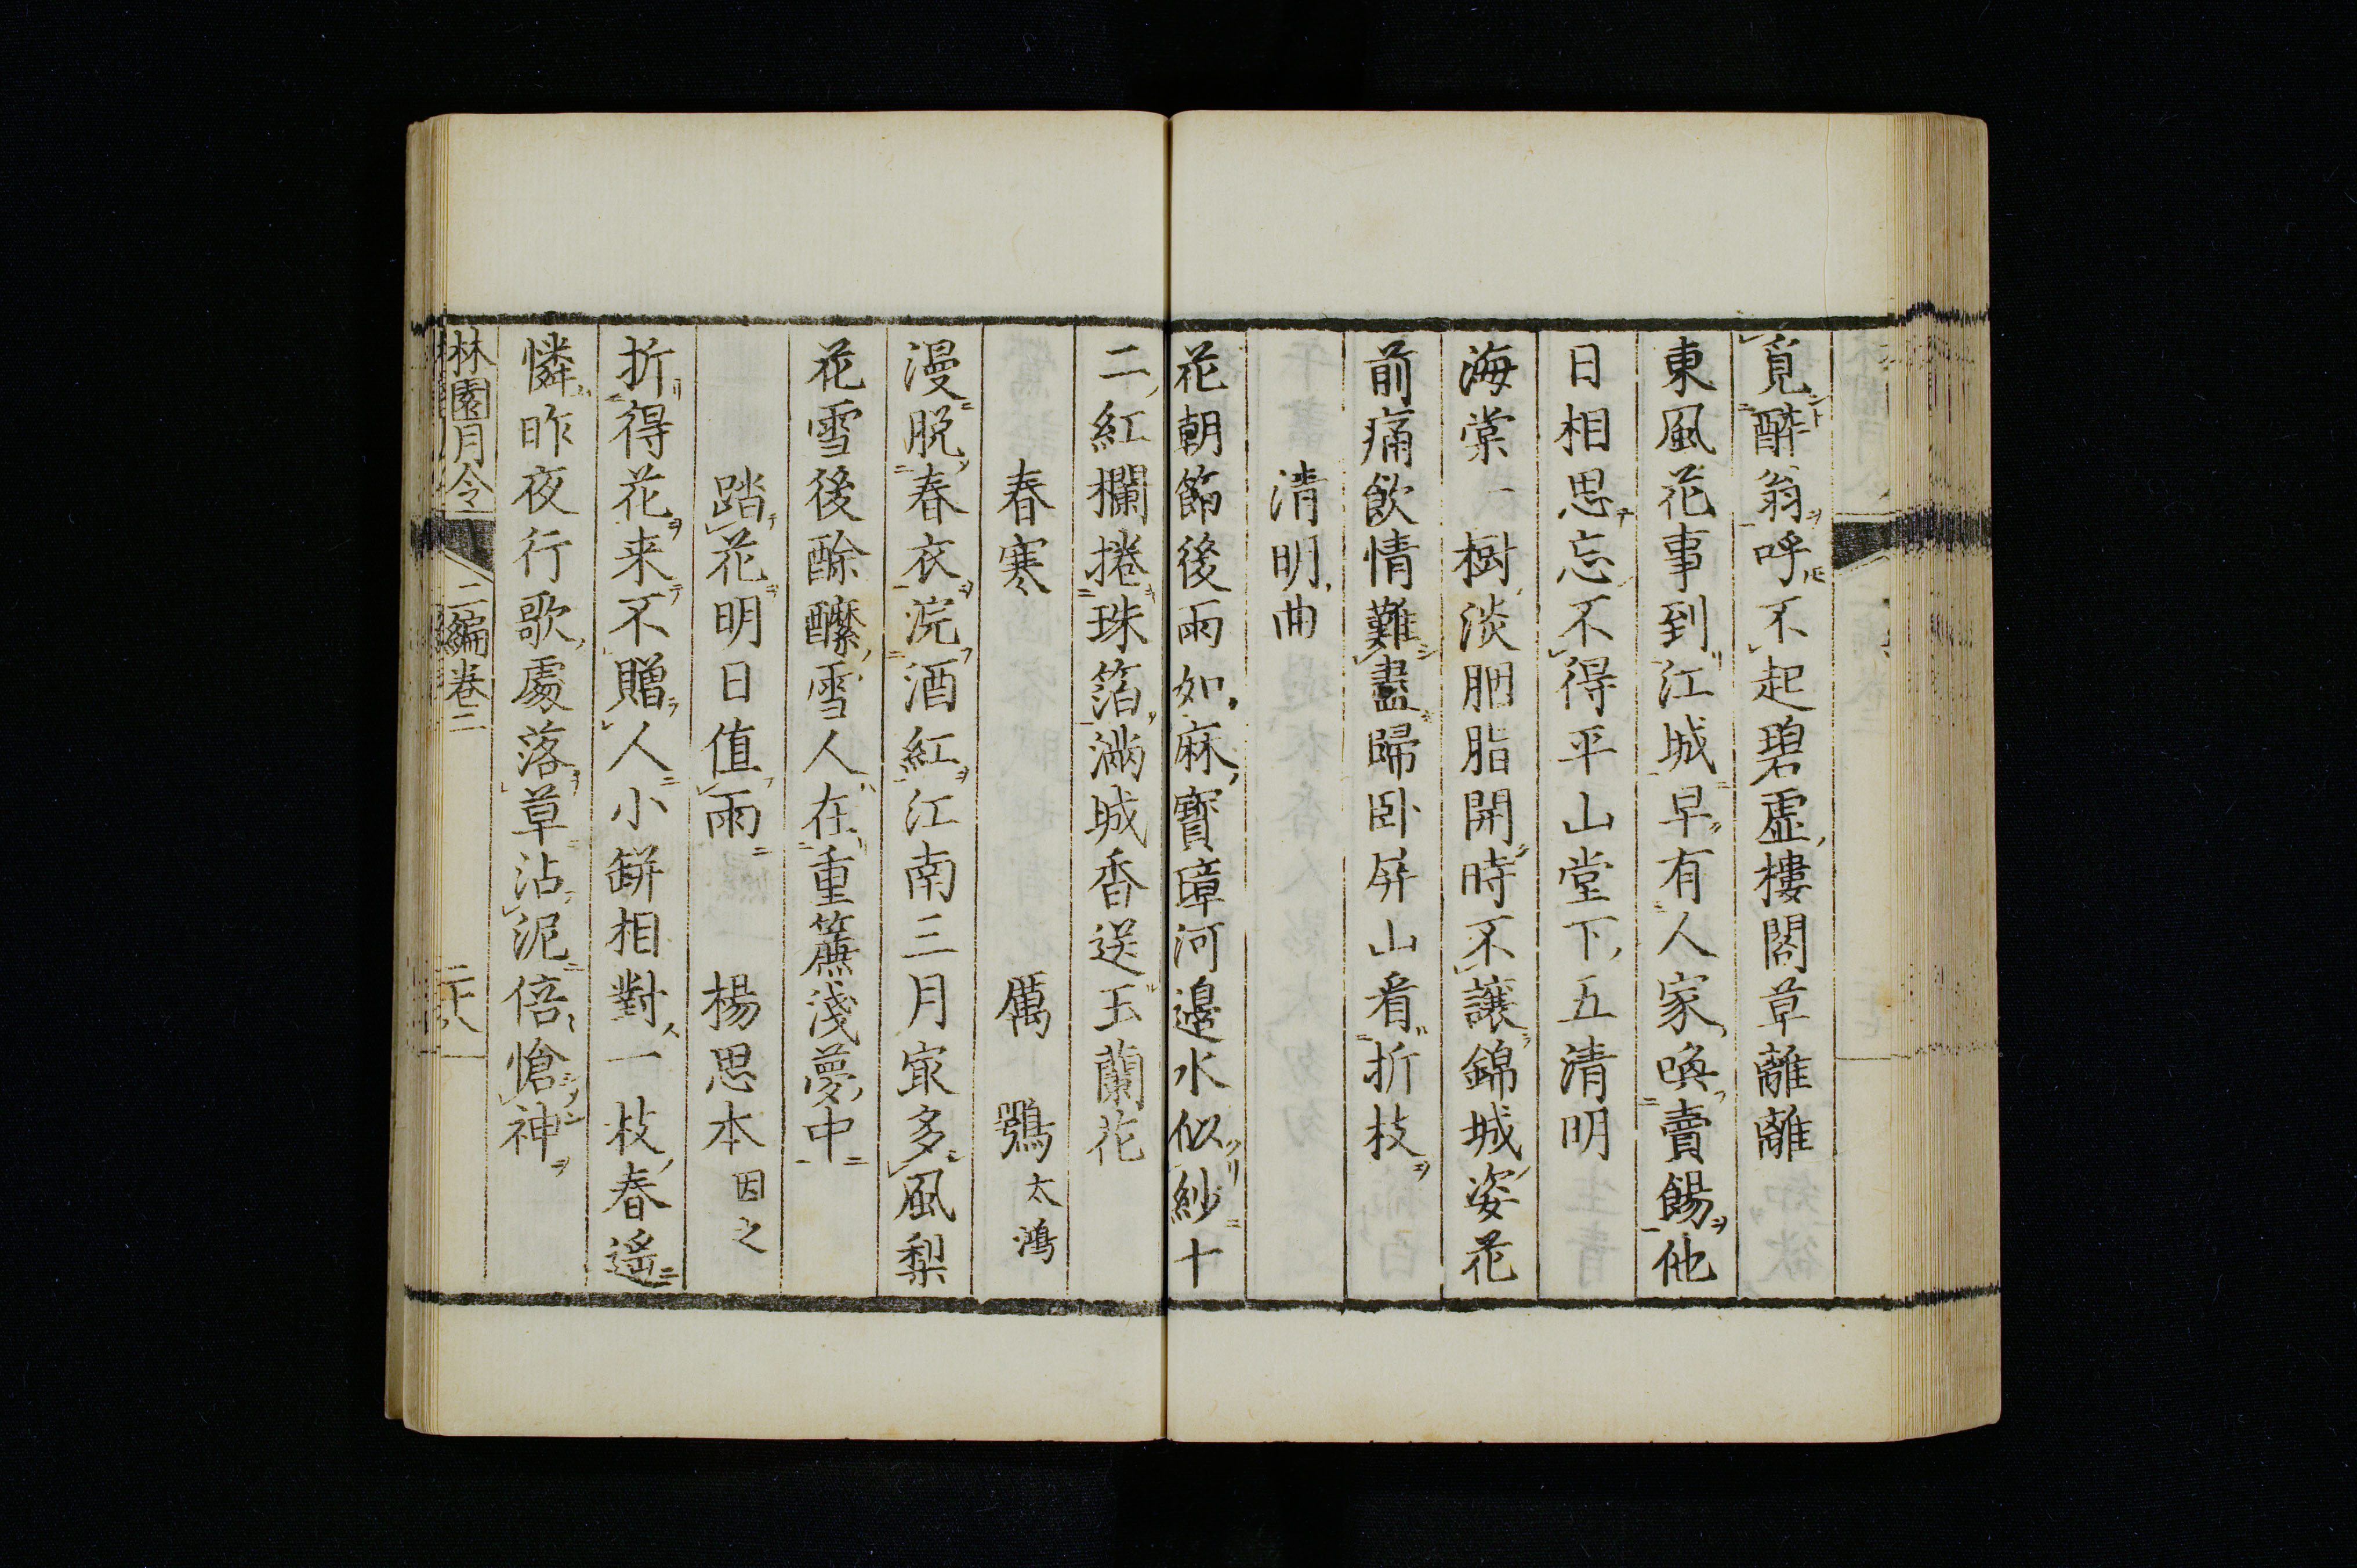 覓醉翁呼不起碧虛樓閣草離離
東風花事到江城早有人家喚賣餳他
日相思忘不得平山堂下五清明
海棠一樹淡胭脂開時不讓錦城姿花
前痛飲情難盡歸臥屏山看折枝
清明曲
花朝節後雨如麻寶章河邊水似紗十
二紅欄捲珠箔滿城香送玉蘭花
春寒 厲鶚 太鴻
漫脫春衣浣酒紅江南三月㝡多風梨
花雪後酴醾雪人在重簾淺夢中
踏花明日值雨 楊思本 因之
折得花来不贈人小缾相對一枝春遙
憐昨夜行歌處落草沾泥倍愴神
林園月令 二編卷二 二十八